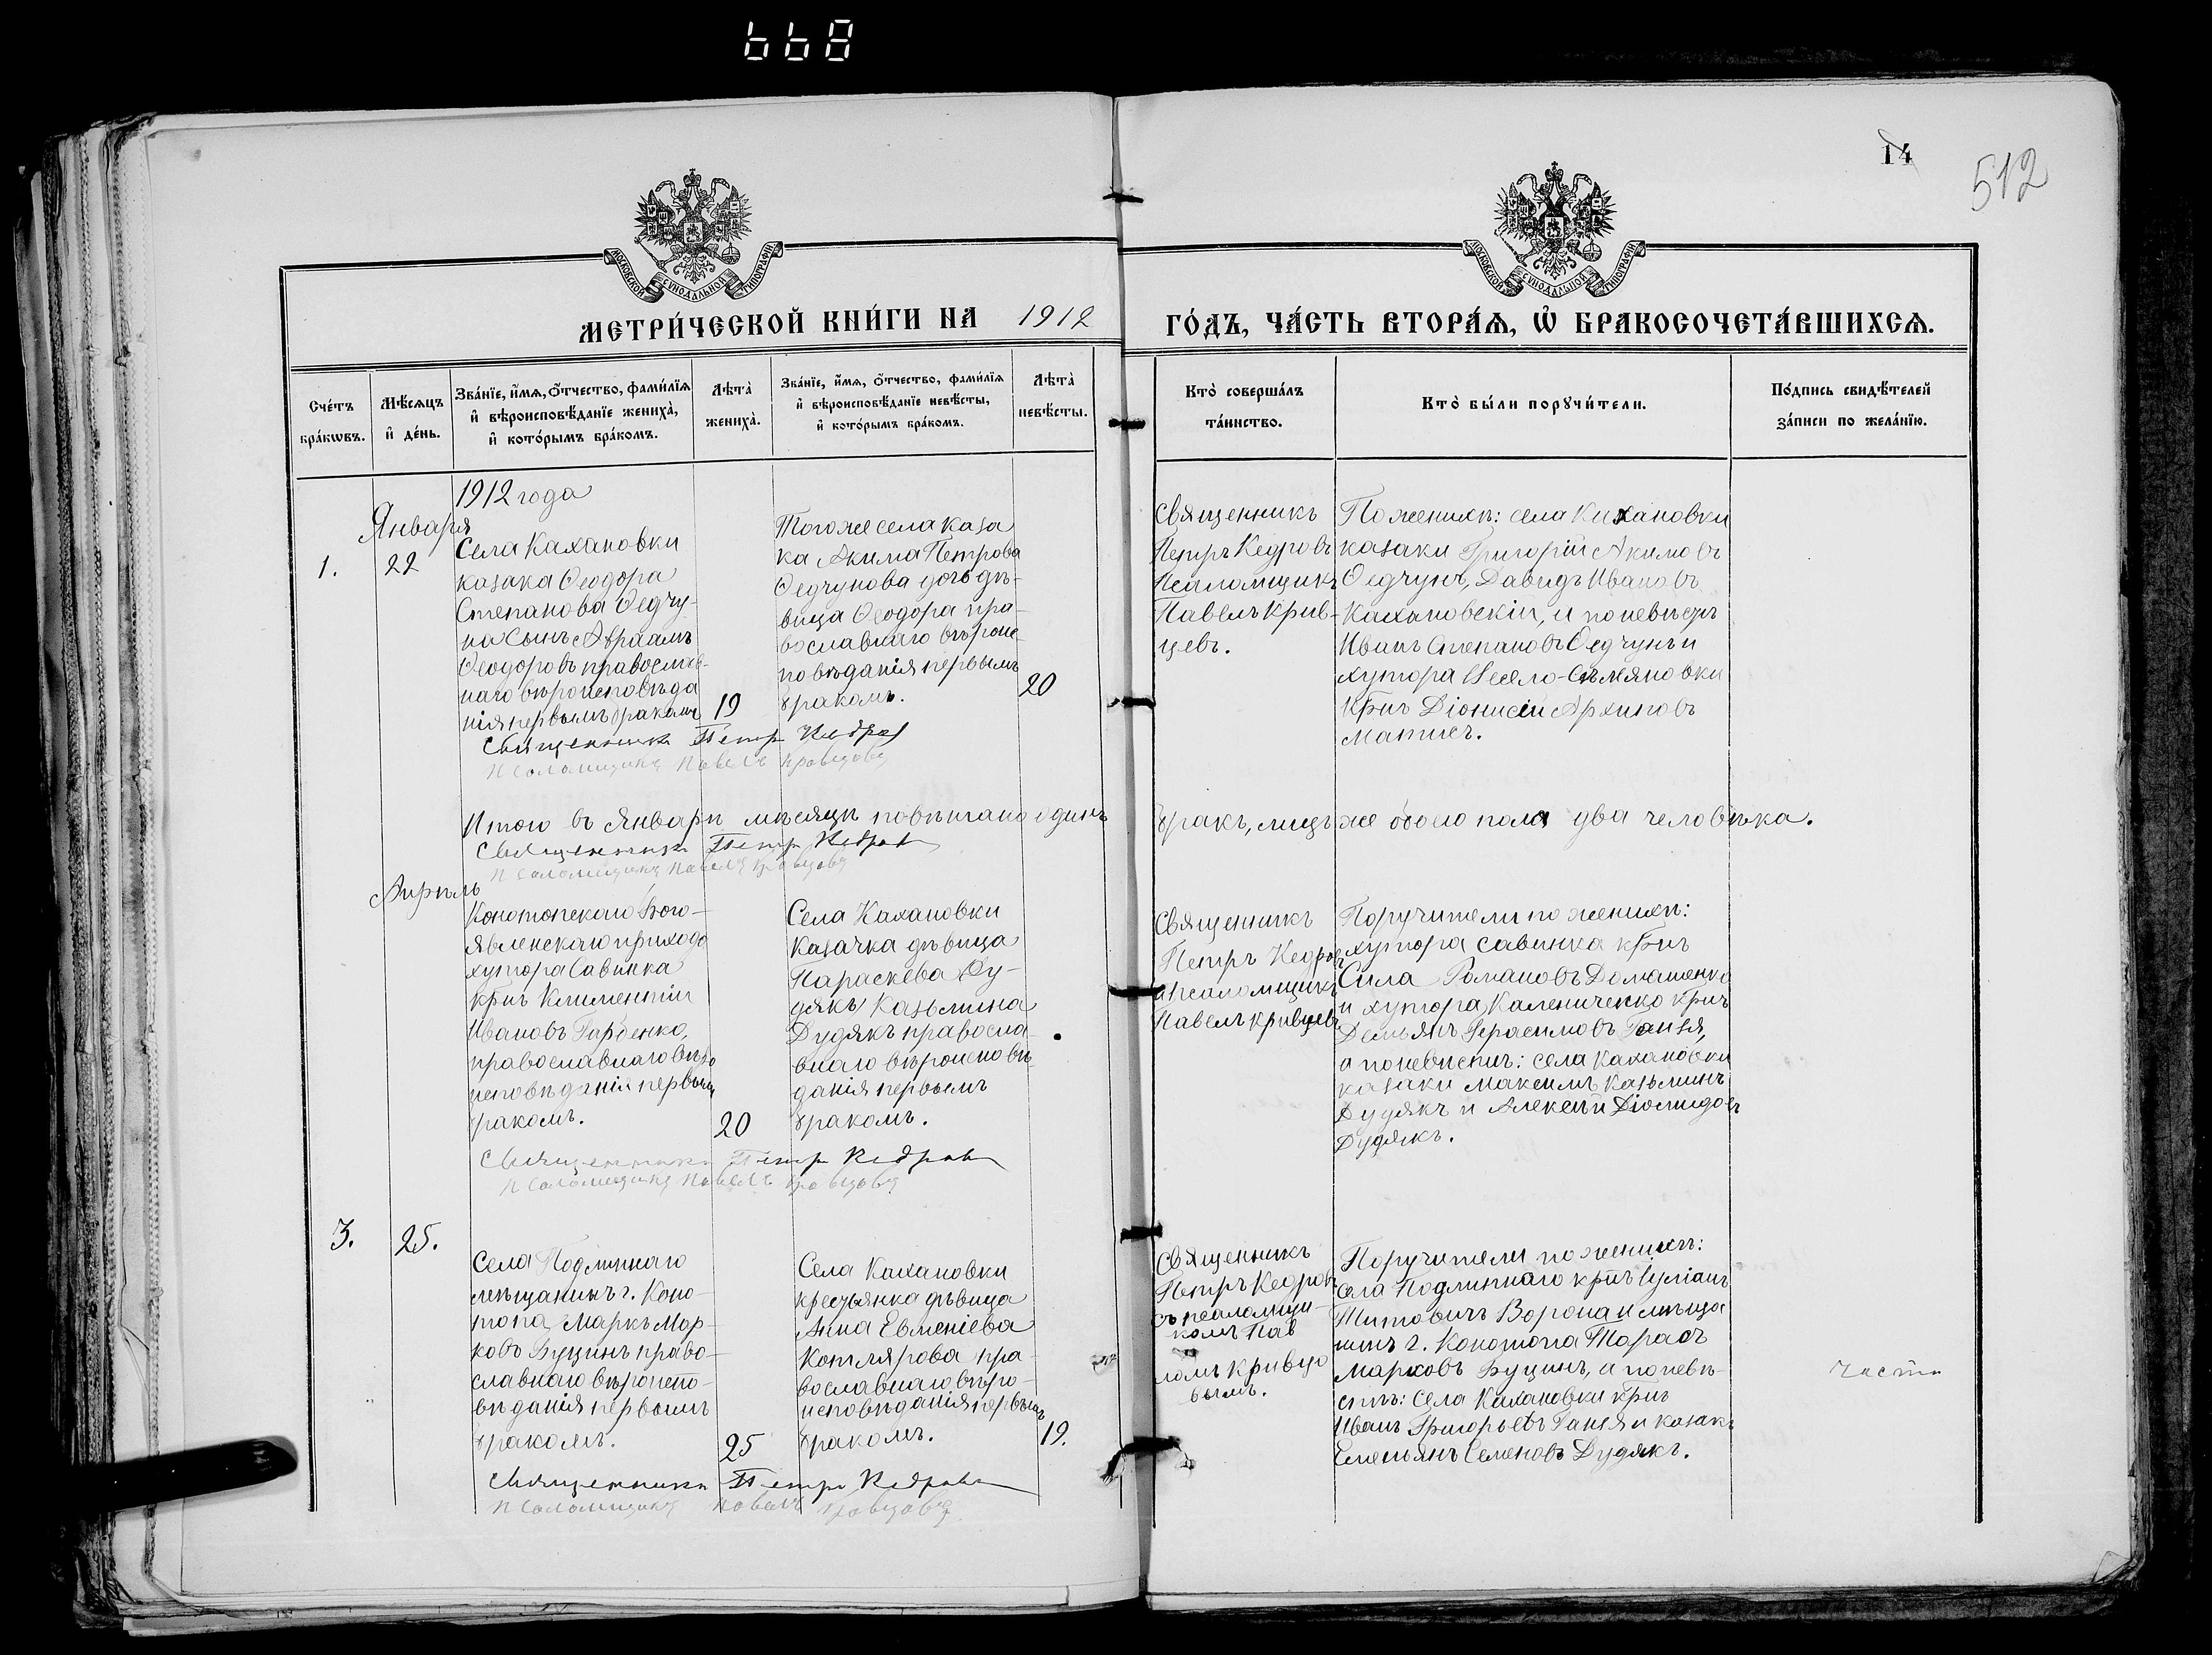 668
14
512
МОСКОВСКОЙ СѴНОДАЛЬНОЙ ТИПОГРАФІИ
МОСКОВСКОЙ СѴНОДАЛЬНОЙ ТИПОГРАФІИ
МЕТРИ́ЧЕСКОЙ КНИ́ГИ НА 1912
ГО́ДЪ, ЧА́СТЬ ВТОРА́Ѧ, Ѡ҆ БРАКОСОЧЕТА́ВШИХСѦ.
Сче́тъ
бра́кѡвъ.
Мѣ́сѧцъ
и҆ де́нь.
Зва́нїе, и҆́мѧ, ѻ҆́тчество, фами́лїѧ
и҆ вѣроисповѣ́данїе жениха̀,
и҆ кото́рымъ бра́комъ.
Лѣта̀
жениха̀.
Зва́нїе, и҆́мѧ, ѻ҆́тчество, фами́лїѧ
и҆ вѣроисповѣ́данїе невѣ́сты,
и҆ кото́рымъ бра́комъ.
Лѣта̀
невѣ́сты.
Кто̀ соверша́лъ
та́инство.
Кто̀ бы́ли порꙋчи́тели.
По́дпись свидѣ́телей
за́писи по жела́нїю.
1912 года
Января
1.
22
Села Кахановки
казака Ѳеодора
Степанова Ѳедчу-
на сынъ Авраамъ
Ѳеодоровъ православ-
наго вѣроисповѣда
нія первымъ бракомъ
19
Тогоже села каза
ка Акима Петрова
Ѳедчунова дочь дѣ-
вица Ѳеодора пра-
вославнаго вѣроис-
повѣданія первымъ
бракомъ.
20
Священникъ
Петръ Кедровъ
Псаломщикъ
Павелъ Крив-
цевъ.
По женихѣ: села Кахановки
казаки Григорій Акимовъ
Ѳедчунъ, Давидъ Ивановъ
Кахановскій, и по невѣстѣ
Иванъ Степановъ Ѳедчунъ и
хутора Весело-
крнъ Діонисій Архиповъ
Священникъ Петръ Кедровъ
Псаломщикъ Павелъ Кривцовъ
Итого въ Январѣ мѣсяцѣ повѣнчано одинъ бракъ, лицъ же обоего пола два человѣка.
Священникъ Петръ Кедровъ
Псаломщикъ Павелъ Кривцовъ
Апрѣль
Конотопскаго Бого-
явленскаго прихода
хутора Савинка
крнъ Климентій
Ивановъ Гарбенко,
православнаго вѣро
исповѣданія первымъ
бракомъ.
20
Села Кахановки
казачка дѣвица
Параскева Ду-
дякъ Казьмина
Дудякъ правосла-
внаго вѣроисповѣ-
данія первымъ
бракомъ.
Священникъ
Петръ Кедровъ
и псаломщикъ
Павелъ Кривцевъ
Поручители по женихѣ:
хутора Савинка крнъ
Сила Романовъ Домашенко
и хутора Калениченко крнъ
Демьянъ Герасимовъ Ганзя,
а по невѣстѣ: села Кахановки
казаки Максимъ Казьминъ
Дудякъ и Алексѣй Діомидовъ
Дудякъ.
Священникъ Петръ Кедровъ
Псаломщикъ Павелъ Кривцовъ
3.
25.
Села Подлипнаго
мѣщанинъ г. Коно-
топа, Маркъ Мар-
ковъ Буцинъ право-
славнаго вѣроиспо-
вѣданія первымъ
бракомъ.
25
Села Кахановки
крестьянка дѣвица
Анна Евменіева
Котлярова пра-
вославнаго вѣро-
исповѣданія первымъ
бракомъ.
19.
Священникъ
Петръ Кедровъ
съ псаломщи-
комъ Пав
ломъ Кривцо
вымъ.
Поручители по женихѣ:
села Подлипнаго крнъ Іуліанъ
Титовичъ Ворона и мѣща
нинъ г. Конотопа Тарасъ
Марковъ Буцинъ, а по невѣ-
стѣ: села Кахановки крнъ
Иванъ Григорьевъ Ганзя и казакъ
Емельянъ Семеновъ Дудякъ.
части
Священникъ Петръ Кедровъ
Псаломщикъ Павелъ Кривцовъ